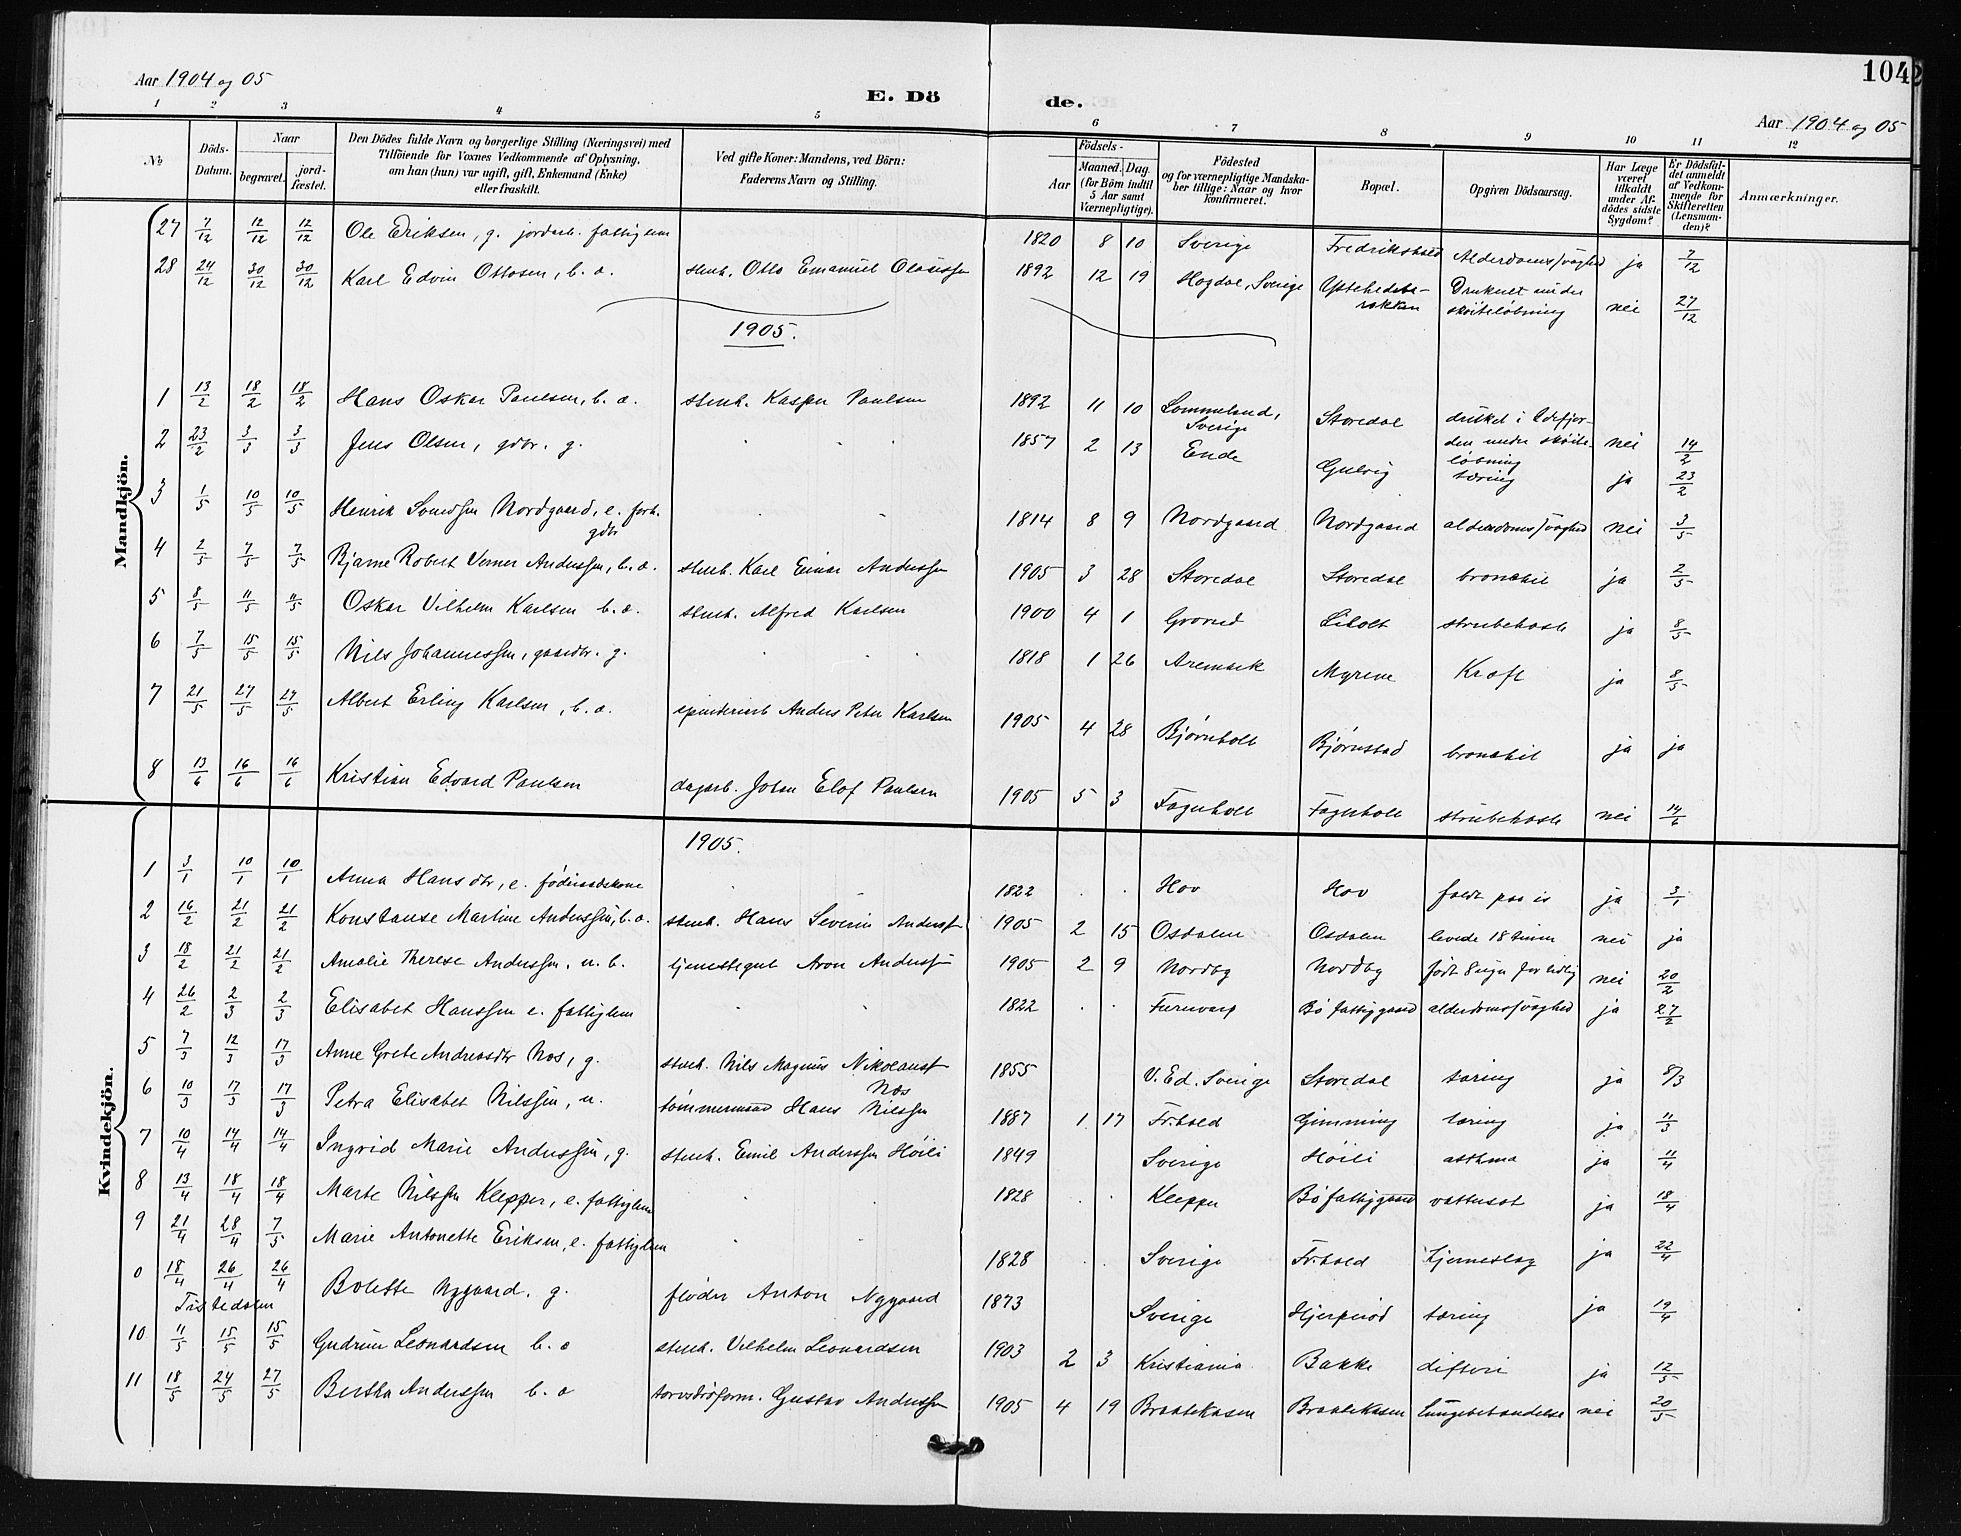 Aar 1904 og 05
104
E. Dö de.
Aar 1904 og 05
1 2 3 4 5 6 7 8 9 10 11 12
No
Döds-Datum.
Naar
begravet.
jord-fæstet.
Den Dödes fulde Navn og borgerlige Stilling (Næringsvei) med
Tilföiende for Voxnes Vedkommende af Oplysning,
om han (hun) var ugift, gift, Enkemand (Enke)
eller fraskilt.
Ved gifte Koner: Mandens, ved Börn:
Faderens Navn og Stilling.
Födsels-
Aar
Maaned. Dag.
(for Börn indtil
5 Aar samt
Værnepligtige).
Födested
og for værnepligtige Mandska-
ber tillige: Naar og hvor
konfirmeret.
Bopæl.
Opgiven Dödsaarsag.
Har Læge
været
tilkaldt
under Af-
dödes sidste
Sygdom?
Er Dödsfal-
det anmeldt
af Vedkom-
mende for
Skifteretten
(Lensman-
den)?
Anmærkninger.
Mandkjön.
27 7/12 12/12 12/12 Ole Eriksen, g. jordarb. fattiglem 1820 8 10 Sverige Fredrikshald Alderdomssvaghed ja 7/12
28 24/12 30/12 30/12 Karl Edvin Ottosen, b. a. stenh. Otto Emanuel Olaussen 1892 12 19 Hogdal, Sverige Ystehedeba-rakken Druknet under skøiteløbning nei 27/12
1905.
1 13/2 18/2 18/2 Hans Oskar Paulsen, b. a. stenh. Kasper Paulsen 1892 11 10 Lommeland, Sverige Storedal druknet i Idefjor-den under skøite-løbning nei 14/2
2 23/2 3/3 3/3 Jens Olsen, gdbr. g. 1857 2 13 Ende Gulvig tæring ja 23/2
3 1/5 10/5 10/5 Henrik Svendsen Nordgaard, e. forh. gdbr 1814 8 9 Nordgaard Nordgaard alderdomssvaghed nei 3/5
4 2/5 7/5 7/5 Bjarne Robert Verner Anderssen, b. a. stenh. Karl Einar Anderssen 1905 3 28 Storedal Storedal bronchit ja 2/5
5 8/5 11/5 11/5 Oskar Vilhelm Karlsen b. a. stenh. Alfred Karlsen 1900 4 1 Liholt strubehoste ja 8/5
6 7/5 15/5 15/5 Nils Johannessen, gaardbr. g. 1818 1 26 Aremark Myrene Kræft ja 8/5
7 21/5 27/5 27/5 Albert Erling Karlsen, b. a. spinderiarb Anders Peter Karlsen 1905 4 28 Bjørnholt Bjørnstad bronchit ja ja
8 13/6 16/6 16/6 Kristian Edvard Paulsen dagarb. Johan Elof Paulsen 1905 5 3 Fagerholt Fagerholt strubehoste nei 14/6
Kvindekjön.
1905.
1 3/1 10/1 10/1 Anna Hansdtr, e. føderaadskone 1822 Hov Hov faldt paa is ja 3/1
2 16/2 21/2 21/2 Konstanse Martine Anderssen, b. a. stenh. Hans Severin Anderss 1905 2 15 Osdalen Osdalen levede 18 timer nei ja
3 18/2 21/2 21/2 Amalie Therese Anderssen, u. b. tjenestegut Aron Anderssen 1905 2 9 Nordby Nordby født 8 uger for tidlig nei 20/2
4 26/2 2/3 2/3 Elisabet Hanssen e. fattiglem 1822 Bø fattiggaard alderdomssvaghed ja 27/2
5 7/3 12/3 17/3 Anne Grete Andreasdtr Næs, g. stenh. Nils Magnus Nikolauss Næs 1855 V. Ed. Sverige Storedal tæring ja 8/3
6 10/3 17/3 17/3 Petra Elisabet Nilssen, u. tømmermand Hans Nilssen 1887 1 17 Fr.hald Gimming tæring ja 11/3
7 10/4 14/4 14/4 Ingrid Marie Anderssen, g. stenh. Emil Anderssen Høili 1849 Sverige Høili asthma ja 11/4
8 13/4 18/4 18/4 Marte Nilssen Klepper, e. fattiglem 1828 Klepper Bø fattiggaard vattersot ja 18/4
9 21/4 28/4 7/5 Marie Antonette Eriksen, e. fattiglem 1828 Sverige Fr.hald hjerneslag ja 22/4
0 18/4 26/4 26/4 Tistedalen Bolette Nygaard, g. fløder Anton Nygaard 1873 Sverige Hjerperød tæring ja 19/4
10 11/5 15/5 15/5 Gudrun Leonardsen b. a stenh. Vilhelm Leonardsen 1903 2 3 Kristiania Bakke difteri ja 12/5
11 18/5 24/5 27/5 Bertha Anderssen b. a torvstrøform. Gustav Anderssen 1905 4 19 Braatekasen Braatekasen Lungebetændelse nei 20/5